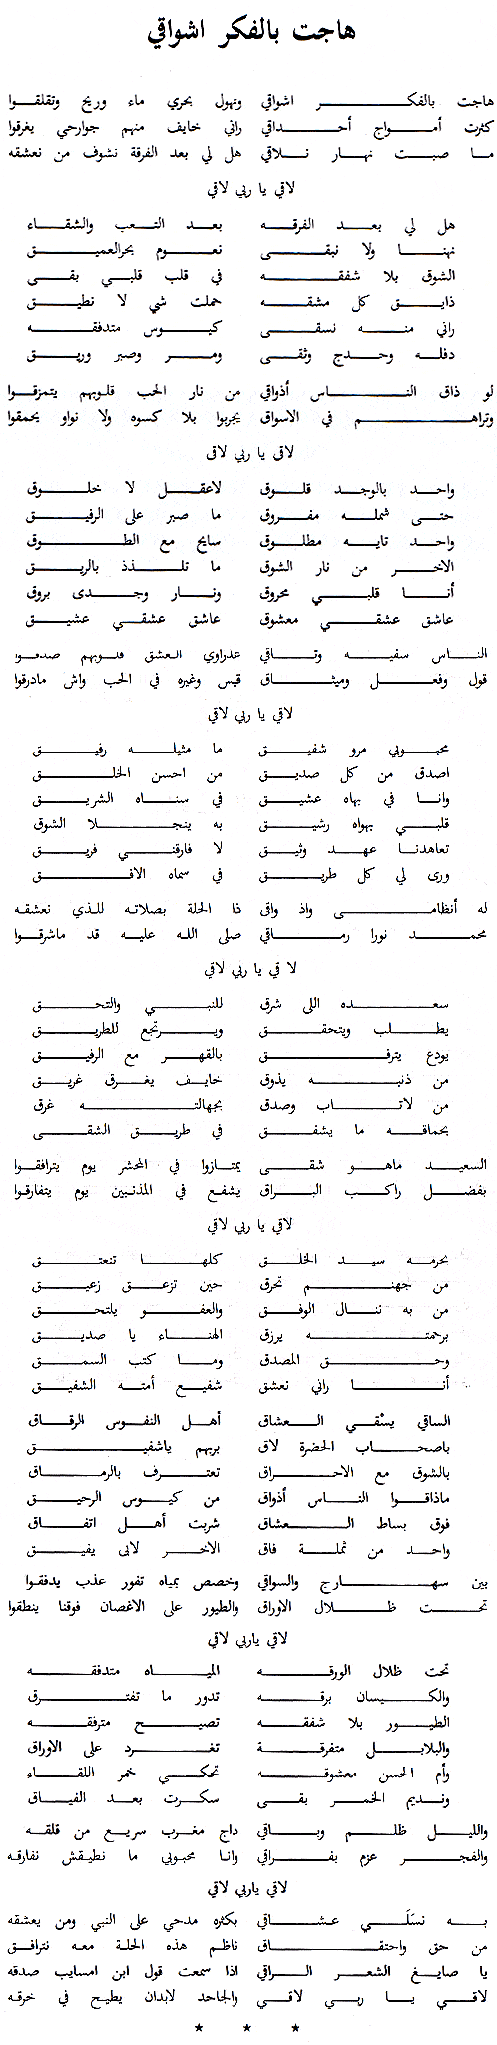 هاجت بالفكر اشواقي
هاجت بالفكر اشواقي ونهول بحري ماء وريح وتقلقوا
كثرت أمواج أحداقي راني خايف منهم جوارحي يغرقوا
ما صبت نهار نلاقي هل لي بعد الفرقة نشوف من نعشقه
لاقي يا ربي لاقي
هل لي بعد الفرقه بعد التعب والشقاء
نهنا ولا نبقى نعوم بحر العميق
الشوق بلا شفقه في قلب قلبي بقى
ذايق كل مشقه حملت شي لا نطيق
راني منه نسقى كيوس متدفقه
دفله وحدج وثقى ومر وصبر وريق
لو ذاق الناس أذواقي من نار الحب قلوبهم يتمزقوا
وتراهم في الاسواق يجريوا بلا كسوه ولا نواو يحمقوا
لاقي يا ربي لاقي
واحد بالوجد قلوق لاعقل لا خلوق
حتى شمله مفروق ما صبر على الرفيق
واحد تايه مطلوق سايح مع الطوق
الاخر من نار الشوق ما تلذذ بالريق
أنا قلبي محروق ونار وجدى بروق
عاشق عشقي معشوق عاشق عشقي عشيق
الناس سفيه وتاقي عذراوي العشق قلوبهم صدقوا
قول وفعل وميثاق قيس وغيره في الحب واش مادرقوا
لاقي يا ربي لاقي
محبوبي مرو شفيق ما مثيله رفيق
اصدق من كل صديق من احسن الخلق
وانا في بهاه عشيق في سناه الشريق
قلبي بهواه رشيق به ينجلا الشوق
تعاهدنا عهد وثيق لا فارقني فريق
ورى لي كل طريق في سماه الافق
له أنظامى واذ واقي ذا الحلة بصلاته للذي نعشقه
محمد نورا رماقي صلى الله عليه قد ماشرقوا
لا قي يا ربي لاقي
سعده اللى شرق للنبي والتحق
يطلب ويتحقق ويرتجع للطريق
يودع يترفق بالقهر مع الرفيق
من ذنبه يذوق خايف يغرق غريق
من لاتاب وصدق بجهالته غرق
بحماقه ما يشفق في طريق الشقى
السعيد ماهو شقى يمتازوا في المحشر يوم يترافقوا
بفضل راكب البراق يشفع في المذنبين يوم يتفارقوا
لاقي يا ربي لاقي
بحرمه سيد الخلق كلها تنعتق
من جهنم تحرق حين تزعق زعيق
من به ننال الوفق والعفو يلتحق
برحمته يرزق الهناء يا صديق
وحق المصدق وما كتب السمق
أنا راني نعشق شفيع أمته الشفيق
الساقي يسْقي العشاق أهل النفوس الرقاق
باصحاب الحضرة لاق بربهم ياشفيق
بالشوق مع الاحراق تعترف بالرماق
ماذاقوا الناس أذواق من كيوس الرحيق
فوق بساط العشاق شربت أهل اتفاق
واحد من ثملة فاق الاخر لابى يفيق
بين سهارج والسواقي وخصص بمياه تفور عذب يدفقوا
تحت ظلال الاوراق والطيور على الاغصان فوقنا ينطقوا
لاقي ياربي لاقي
تحت ظلال الورقه المياه متدفقه
والكيسان برقه تدور ما تفترق
الطيور بلا شفقه تصيح مترفقه
والبلابل متفرقة تغرد على الاوراق
وأم الحسن معشوقه تحكي خمر اللقاء
ونديم الخمر بقى سكرت بعد الفياق
والليل ظلم وباقي داج مغرب سريع من قلقه
والفجر عزم بفراقي وانا محبوبي ما نطيقش نفارقه
لاقي ياربي لاقي
به نسَلَي عشاقي بكثره مدحي على النبي ومن يعشقه
من حق واحتقاق ناظم هذه الحلة معه نترافق
يا صايغ الشعر الراقي اذا سمعت قول ابن امسايب صدقه
لاقي يا ربي لاقي والجاحد لابدان يطيح في خرقه
* * *